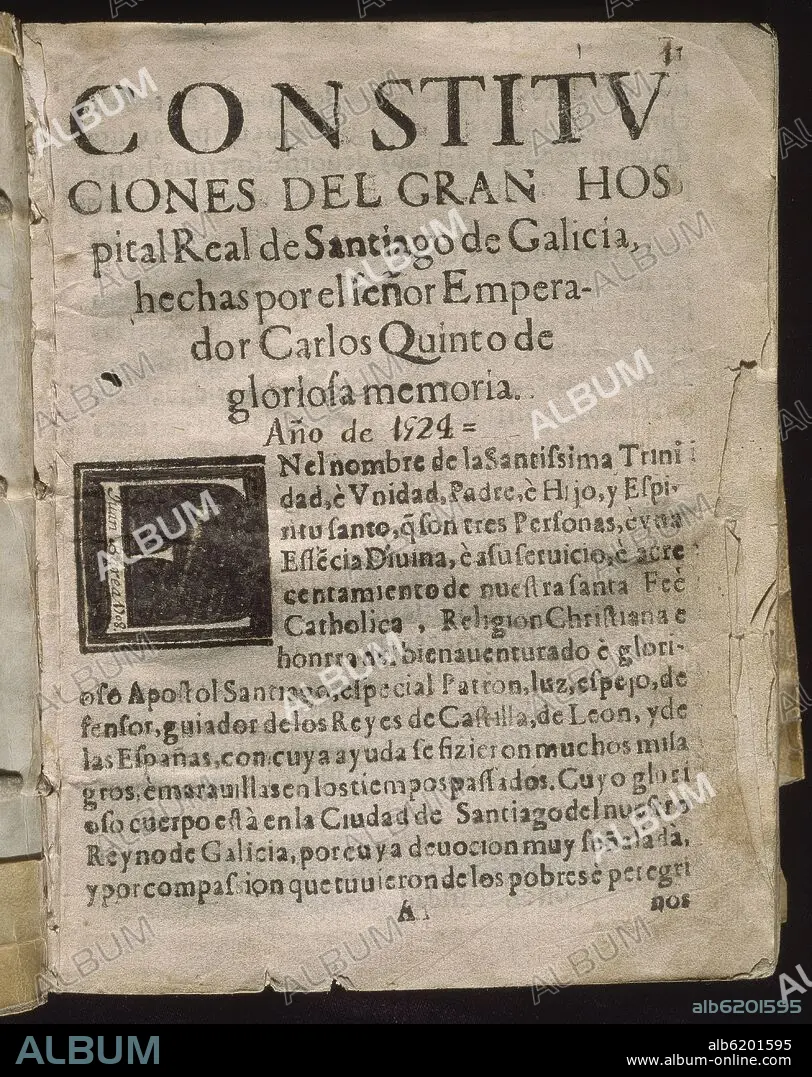 CONSTITV
CIONES DEL GRAN HOS
pital Real de Santiago de Galicia,
hechas por el ſeñor Empera-
dor Carlos Quinto de
glorioſa memoria.
Año de 1524 =
E
Nel nombre de la Santiſsima Trini
dad, è Vnidad, Padre, è Hijo, y Eſpi-
ritu ſanto, q̃ ſon tres Perſonas, è vna
Eſſẽcia Diuina, è a ſu ſeruicio, è acre
centamiento de nueſtra ſanta Fee
Catholica, Religion Chriſtiana e
honrra del bienauenturado è glori-
oſo Apoſtol Santiago, eſpecial Patron, luz, eſpejo, de
fenſor, guiador de los Reyes de Caſtilla, de Leon, y de
las Eſpañas, con cuya ayuda ſe fizieron muchos mila
gros, è marauillas en los tiempos paſſados. Cuyo glori
oſo cuerpo eſtà en la Ciudad de Santiago del nueſtro
Reyno de Galicia, por cuya deuocion muy ſeñalada,
y por compaſsion que tuuieron de los pobres è peregri
A
nos
ALBUM
alb6201595
ALBUM
alb6201595
www.album-online.com